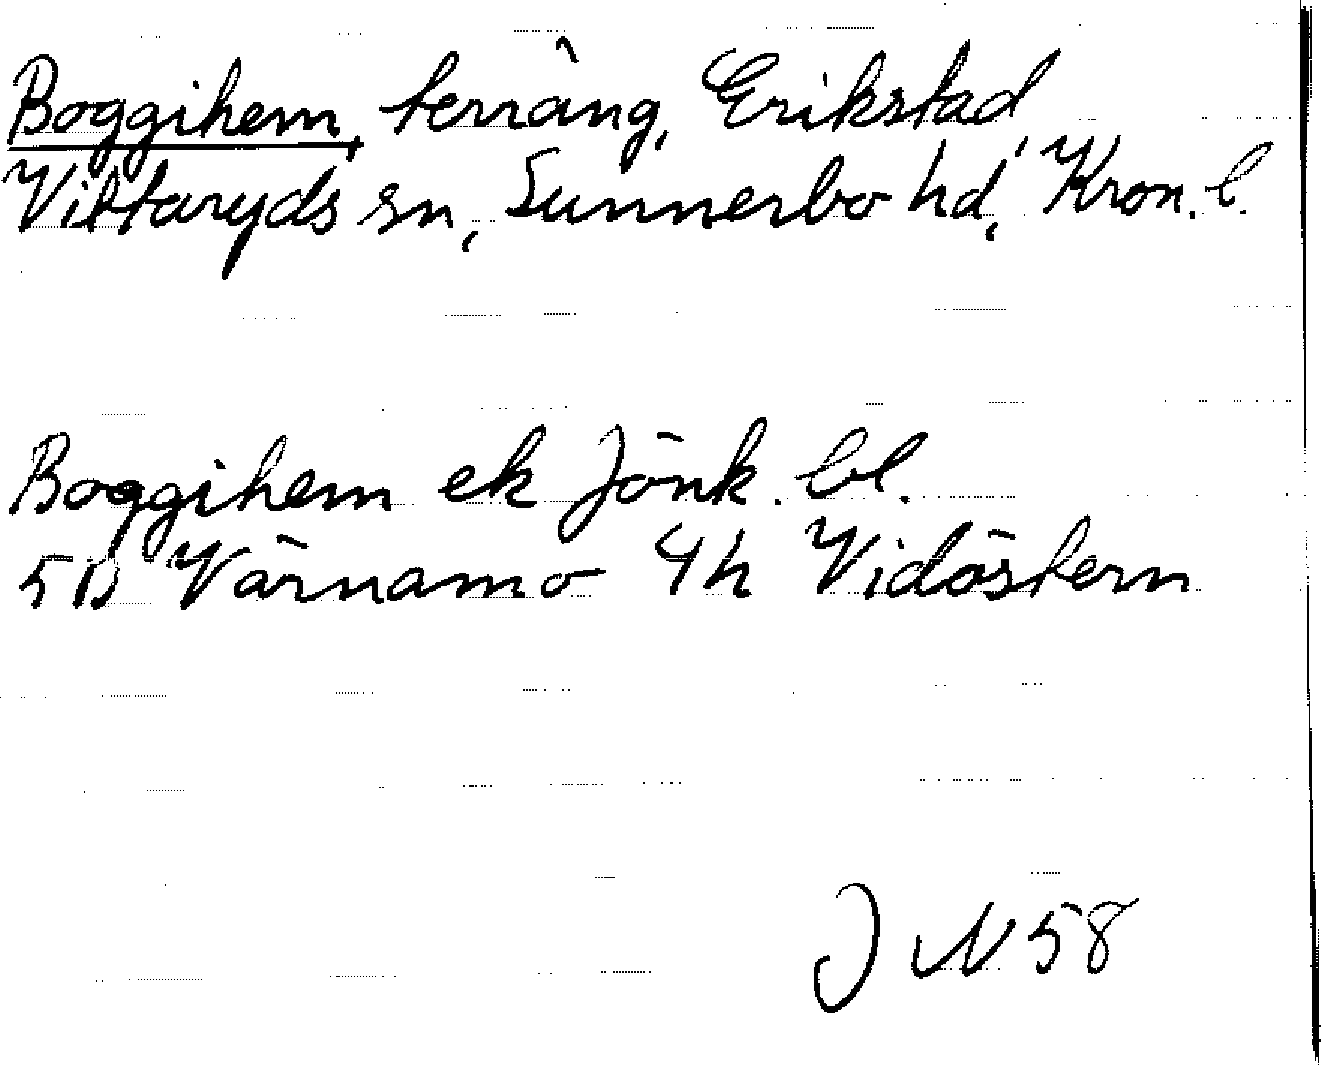 Boggihem, terräng, Erikstad,
Vittaryds sn, Sunnerbo hd, Kron. l.
Boggihem ek Jönk. bl.
5D Värnamo 4h Vidöstern
J N 58